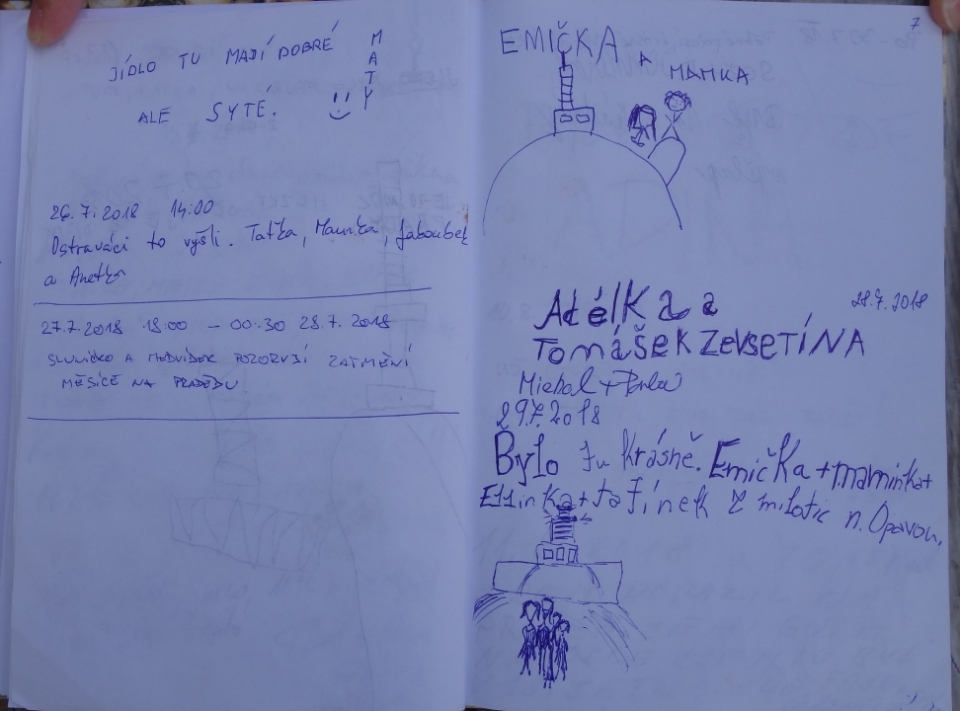 JÍDLO TU MAJÍ DOBRÉ
ALE SYTE.
MATY
26.7.2018 14:00
Ostraváci to vyšli. Taťka, Mamka, Jakoubek
a Anetka
27.7.2018 18:00 – 00:30 28.7.2018
SLUNÍČKO A MEDVÍDEK POZORUJÍ ZATMĚNÍ
MĚSÍCE NA PRADĚDU
7
EMIČKA
A MAMKA
28.7.2018
Adélka a
Tomášek ZEVSETÍNA
Michal +
29.7.2018
Bylo tu krásně. Emička + maminka +
Ellinka + taťínek z milotic n. Opavou,